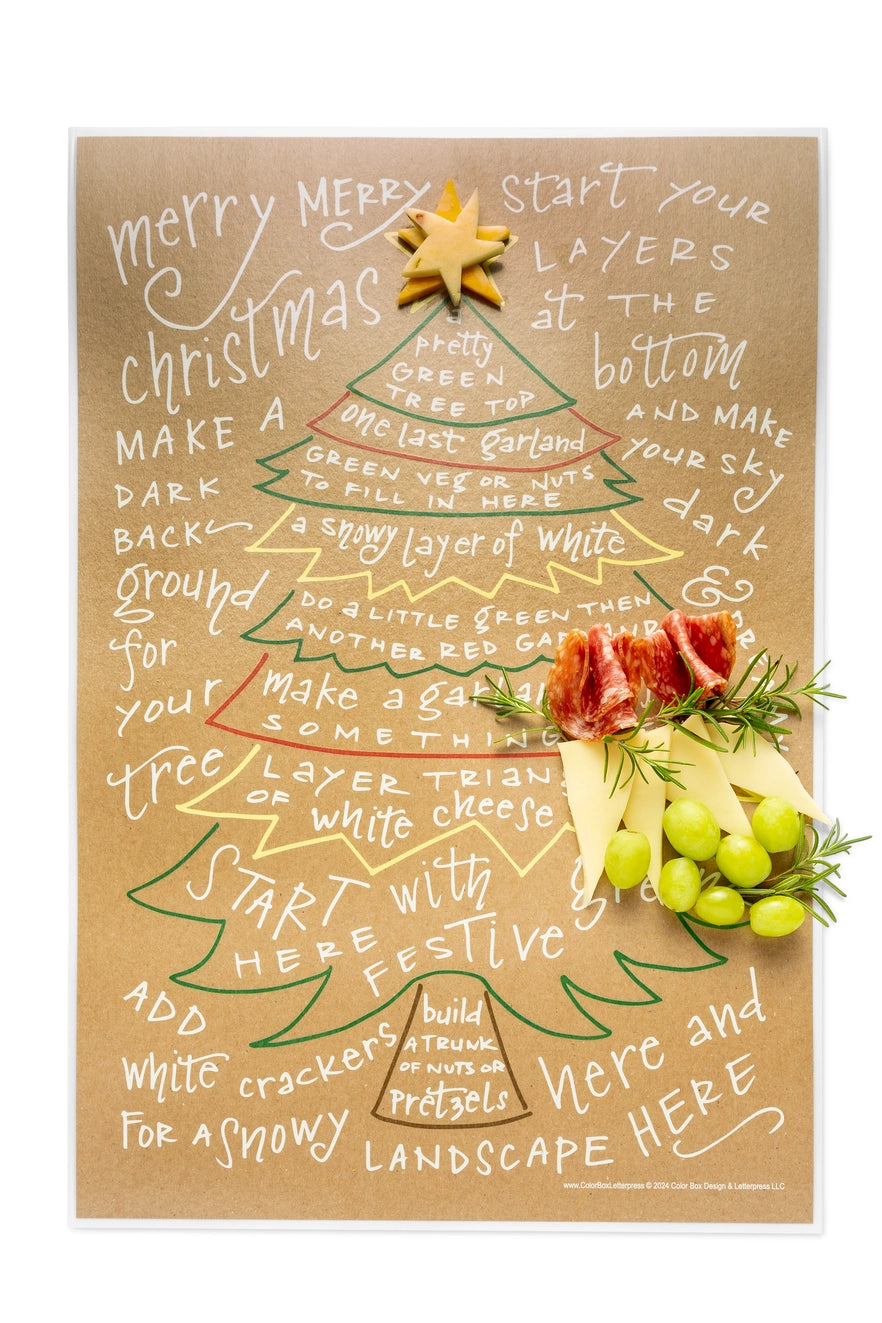 merry MERRY
christmas
MAKE A
DARK
BACK
ground
for
your
tree
start YOUR
LAYERS
at THE
bottom
AND MAKE
YOUR SKY
dark
&
a
pretty
GREEN
TREE TOP
one last garland
GREEN VEG OR NUTS
TO FILL IN HERE
a snowy layer of white
DO A LITTLE GREEN THEN
ANOTHER RED
make a
SOMETHING
LAYER
OF white cheese
START with
HERE FESTIVE
build
A TRUNK
OF NUTS OR
PRETZELS
ADD
white crackers here and
FOR A SNOWY LANDSCAPE HERE
www.ColorBoxLetterpress © 2024 Color Box Design & Letterpress LLC